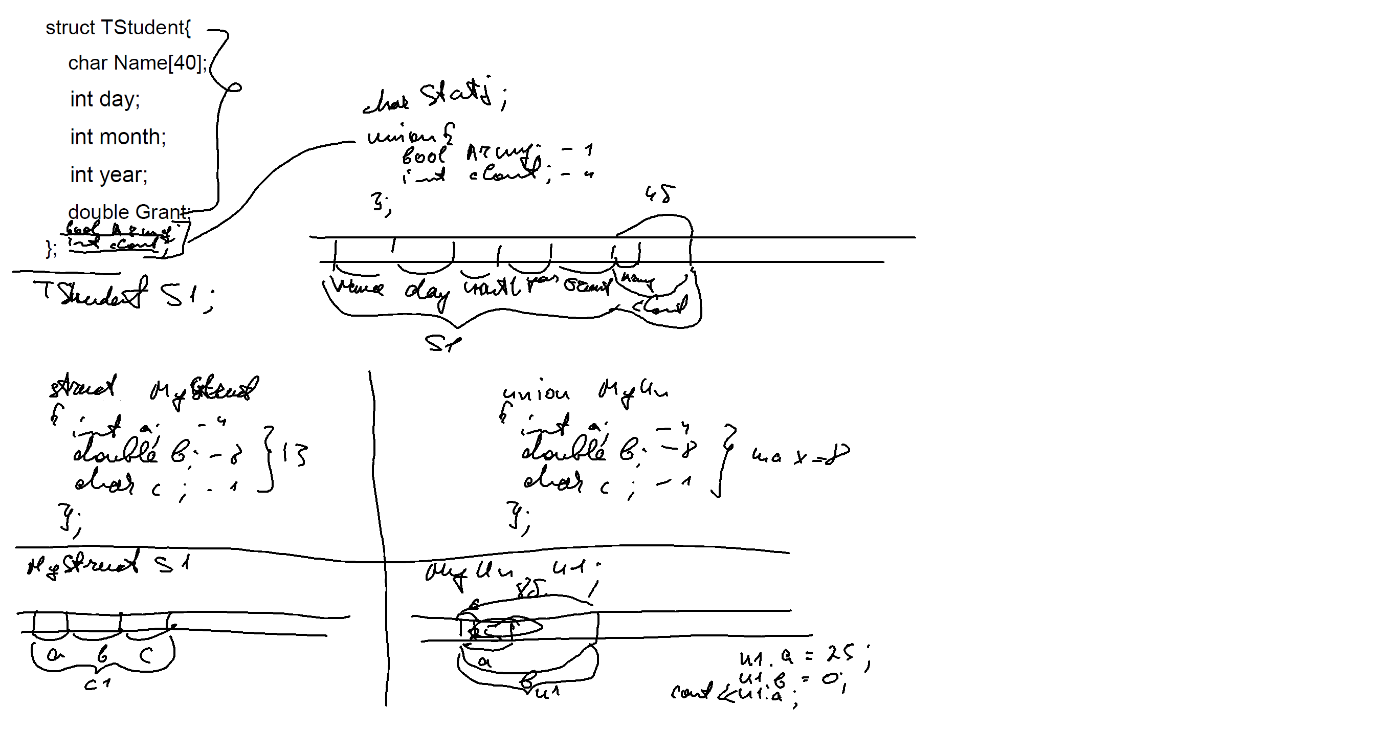 struct TStudent{
char Name[40];
int day;
int month;
int year;
double Grant;
bool Army;
};
TStudent S1;
char Stat;
union {
bool Army; - 1
int cLont; - 4
};
45
day
cLont
S1
struct MyStruct
{ int a; - 4
double b; - 8
char c; - 1
};
} 13
MyStruct S1
a b c
union MyUn
{ int a; - 4
double b; - 8
char c; - 1
};
} max = 8
MyUn u1;
a
b
u1
u1.a = 25;
u1.b = 0;
cout << u1.a;